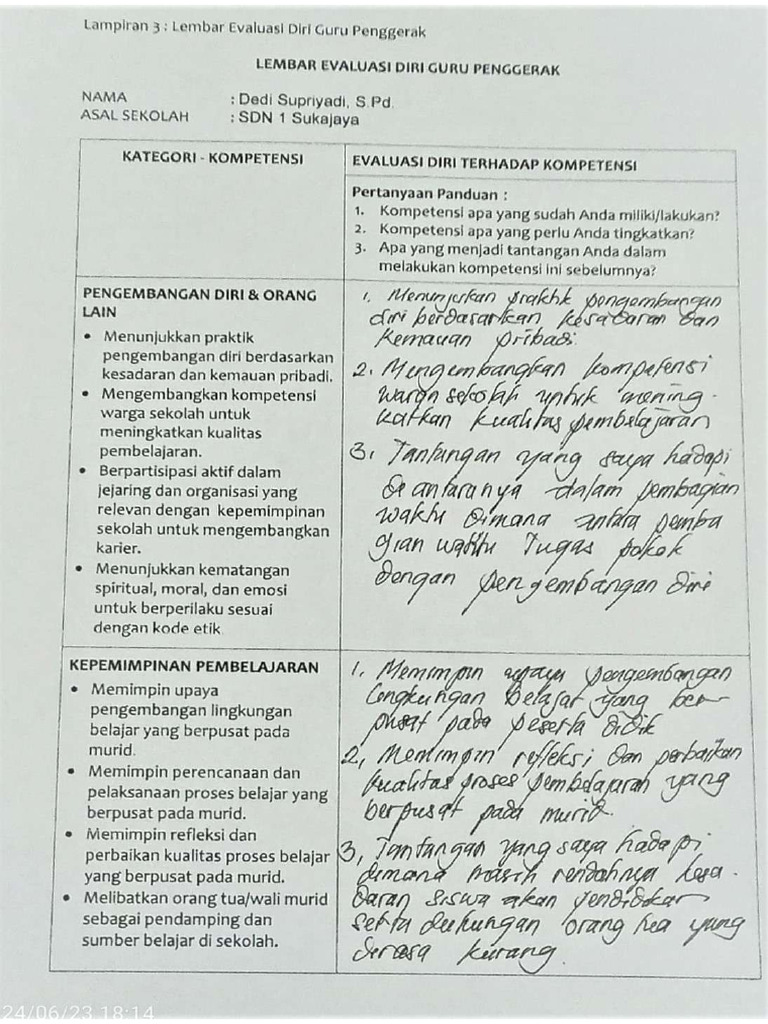 Lampiran 3 : Lembar Evaluasi Diri Guru Penggerak
LEMBAR EVALUASI DIRI GURU PENGGERAK
NAMA : Dedi Supriyadi, S.Pd.
ASAL SEKOLAH : SDN 1 Sukajaya
KATEGORI - KOMPETENSI
EVALUASI DIRI TERHADAP KOMPETENSI
Pertanyaan Panduan :
1. Kompetensi apa yang sudah Anda miliki/lakukan?
2. Kompetensi apa yang perlu Anda tingkatkan?
3. Apa yang menjadi tantangan Anda dalam
melakukan kompetensi ini sebelumnya?
PENGEMBANGAN DIRI & ORANG
LAIN
• Menunjukkan praktik
pengembangan diri berdasarkan
kesadaran dan kemauan pribadi.
• Mengembangkan kompetensi
warga sekolah untuk
meningkatkan kualitas
pembelajaran.
• Berpartisipasi aktif dalam
jejaring dan organisasi yang
relevan dengan kepemimpinan
sekolah untuk mengembangkan
karier.
• Menunjukkan kematangan
spiritual, moral, dan emosi
untuk berperilaku sesuai
dengan kode etik.
1. Menunjukan praktik pengembangan
diri berdasarkan kesadaran dan
kemauan pribadi.
2. Mengembangkan kompetensi
warga sekolah untuk mening-
katkan kualitas pembelajaran
3. Tantangan yang saya hadapi
di antaranya dalam pembagian
waktu dimana antara pemba
gian waktu Tugas pokok
dengan pengembangan diri
KEPEMIMPINAN PEMBELAJARAN
• Memimpin upaya
pengembangan lingkungan
belajar yang berpusat pada
murid.
• Memimpin perencanaan dan
pelaksanaan proses belajar yang
berpusat pada murid.
• Memimpin refleksi dan
perbaikan kualitas proses belajar
yang berpusat pada murid.
• Melibatkan orang tua/wali murid
sebagai pendamping dan
sumber belajar di sekolah.
1. Memimpin upaya pengembangan
Lingkungan belajar yang ber-
pusat pada peserta didik
2, Memimpin refleksi dan perbaikan
kualitas proses pembelajaran yang
berpusat pada murid.
3, Tantangan yang saya hadapi
dimana masih rendahnya kesa-
daran siswa akan pendidikan
serta dukungan orang tua yang
serasa kurang.
24/06/23 18:14